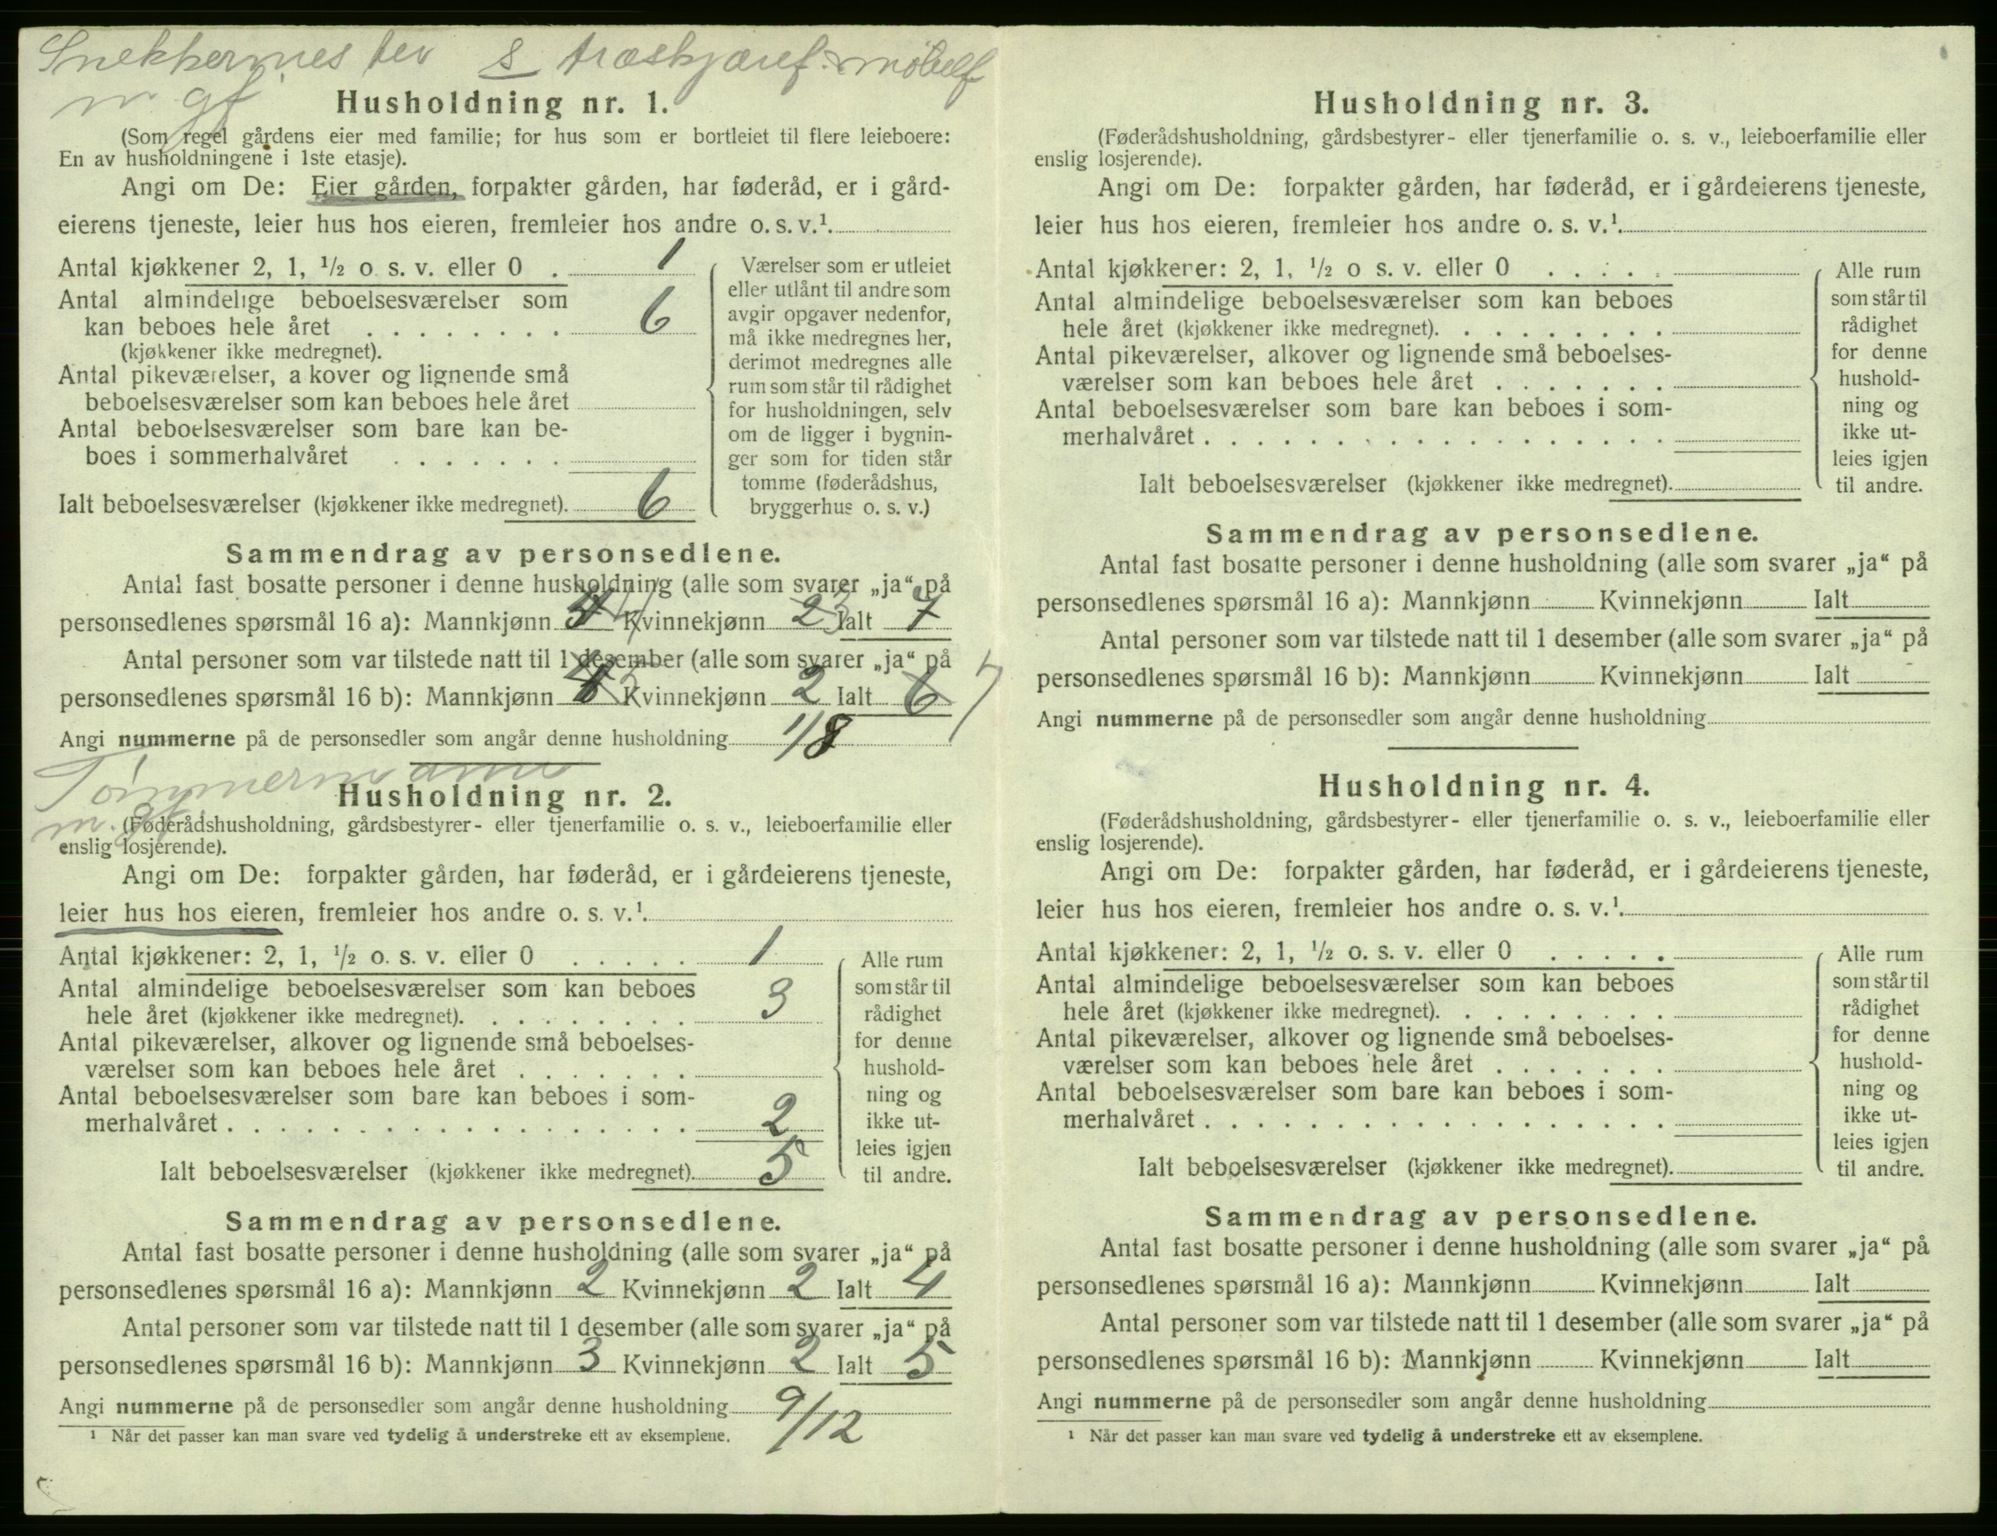 Snekkermester s træskjæref. møbelf
m gf.
Husholdning nr. 1.
(Som regel gårdens eier med familie; for hus som er bortleiet til flere leieboere:
En av husholdningene i 1ste etasje).
Angi om De: Eier gården, forpakter gården, har føderåd, er i gård-
eierens tjeneste, leier hus hos eieren, fremleier hos andre o. s. v.¹.
Antal kjøkkener 2, 1, ½ o s. v. eller 0 . 1
Antal almindelige beboelsesværelser som
kan beboes hele året . . . . . . . . 6
(kjøkkener ikke medregnet).
Antal pikeværelser, a kover og lignende små
beboelsesværelser som kan beboes hele året
Antal beboelsesværelser som bare kan be-
boes i sommerhalvåret . . . . . . .
Ialt beboelsesværelser (kjøkkener ikke medregnet). 6
Værelser som er utleiet
eller utlånt til andre som
avgir opgaver nedenfor,
må ikke medregnes her,
derimot medregnes alle
rum som står til rådighet
for husholdningen, selv
om de ligger i bygnin-
ger som for tiden står
tomme (føderådshus,
bryggerhus o. s. v.)
Sammendrag av personsedlene.
Antal fast bosatte personer i denne husholdning (alle som svarer „ja“ på
personsedlenes spørsmål 16 a): Mannkjønn 4 Kvinnekjønn 2 3 Ialt 7
Antal personer som var tilstede natt til 1 desember (alle som svarer „ja“ på
personsedlenes spørsmål 16 b): Mannkjønn 5 Kvinnekjønn 2 Ialt 6 7
Angi nummerne på de personsedler som angår denne husholdning 1/8
Tømmermann
m. gf.
Husholdning nr. 2.
(Føderådshusholdning, gårdsbestyrer- eller tjenerfamilie o. s. v., leieboerfamilie eller
enslig losjerende).
Angi om De: forpakter gården, har føderåd, er i gårdeierens tjeneste,
leier hus hos eieren, fremleier hos andre o. s. v.¹.
Antal kjøkkener: 2, 1, ½ o. s. v. eller 0 . . . . . 1
Antal almindelige beboelsesværelser som kan beboes
hele året (kjøkkener ikke medregnet). . . . . . . . . 3
Antal pikeværelser, alkover og lignende små beboelses-
værelser som kan beboes hele året . . . . . . .
Antal beboelsesværelser som bare kan beboes i som-
merhalvåret . . . . . . . . . . . . . . . . . . 2
Ialt beboelsesværelser (kjøkkener ikke medregnet). 5
Alle rum
som står til
rådighet
for denne
hushold-
ning og
ikke ut-
leies igjen
til andre.
Sammendrag av personsedlene.
Antal fast bosatte personer i denne husholdning (alle som svarer „ja“ på
personsedlenes spørsmål 16 a): Mannkjønn 2 Kvinnekjønn 2 Ialt 4
Antal personer som var tilstede natt til 1 desember (alle som svarer „ja“ på
personsedlenes spørsmål 16 b): Mannkjønn 3 Kvinnekjønn 2 Ialt 5
Angi nummerne på de personsedler som angår denne husholdning 9/12
¹ Når det passer kan man svare ved tydelig å understreke ett av eksemplene.
Husholdning nr. 3.
(Føderådshusholdning, gårdsbestyrer- eller tjenerfamilie o. s. v., leieboerfamilie eller
enslig losjerende).
Angi om De: forpakter gården, har føderåd, er i gårdeierens tjeneste,
leier hus hos eieren, fremleier hos andre o. s. v.¹.
Antal kjøkkener: 2, 1, ½ o s. v. eller 0 . . . . .
Antal almindelige beboelsesværelser som kan beboes
hele året (kjøkkener ikke medregnet). . . . . . . . .
Antal pikeværelser, alkover og lignende små beboelses-
værelser som kan beboes hele året . . . . . . .
Antal beboelsesværelser som bare kan beboes i som-
merhalvåret . . . . . . . . . . . . . . . . . .
Ialt beboelsesværelser (kjøkkener ikke medregnet).
Alle rum
som står til
rådighet
for denne
hushold-
ning og
ikke ut-
leies igjen
til andre.
Sammendrag av personsedlene.
Antal fast bosatte personer i denne husholdning (alle som svarer „ja“ på
personsedlenes spørsmål 16 a): Mannkjønn Kvinnekjønn Ialt
Antal personer som var tilstede natt til 1 desember (alle som svarer „ja“ på
personsedlenes spørsmål 16 b): Mannkjønn Kvinnekjønn Ialt
Angi nummerne på de personsedler som angår denne husholdning
Husholdning nr. 4.
(Føderådshusholdning, gårdsbestyrer- eller tjenerfamilie o. s. v., leieboerfamilie eller
enslig losjerende).
Angi om De: forpakter gården, har føderåd, er i gårdeierens tjeneste,
leier hus hos eieren, fremleier hos andre o. s. v.¹.
Antal kjøkkener: 2, 1, ½ o. s. v. eller 0 . . . . .
Antal almindelige beboelsesværelser som kan beboes
hele året (kjøkkener ikke medregnet). . . . . . . . .
Antal pikeværelser, alkover og lignende små beboelses-
værelser som kan beboes hele året . . . . . . .
Antal beboelsesværelser som bare kan beboes i som-
merhalvåret . . . . . . . . . . . . . . . . . .
Ialt beboelsesværelser (kjøkkener ikke medregnet).
Alle rum
som står til
rådighet
for denne
hushold-
ning og
ikke ut-
leies igjen
til andre.
Sammendrag av personsedlene.
Antal fast bosatte personer i denne husholdning (alle som svarer „ja“ på
personsedlenes spørsmål 16 a): Mannkjønn Kvinnekjønn Ialt
Antal personer som var tilstede natt til 1 desember (alle som svarer „ja“ på
personsedlenes spørsmål 16 b): Mannkjønn Kvinnekjønn Ialt
Angi nummerne på de personsedler som angår denne husholdning
¹ Når det passer kan man svare ved tydelig å understreke ett av eksemplene.